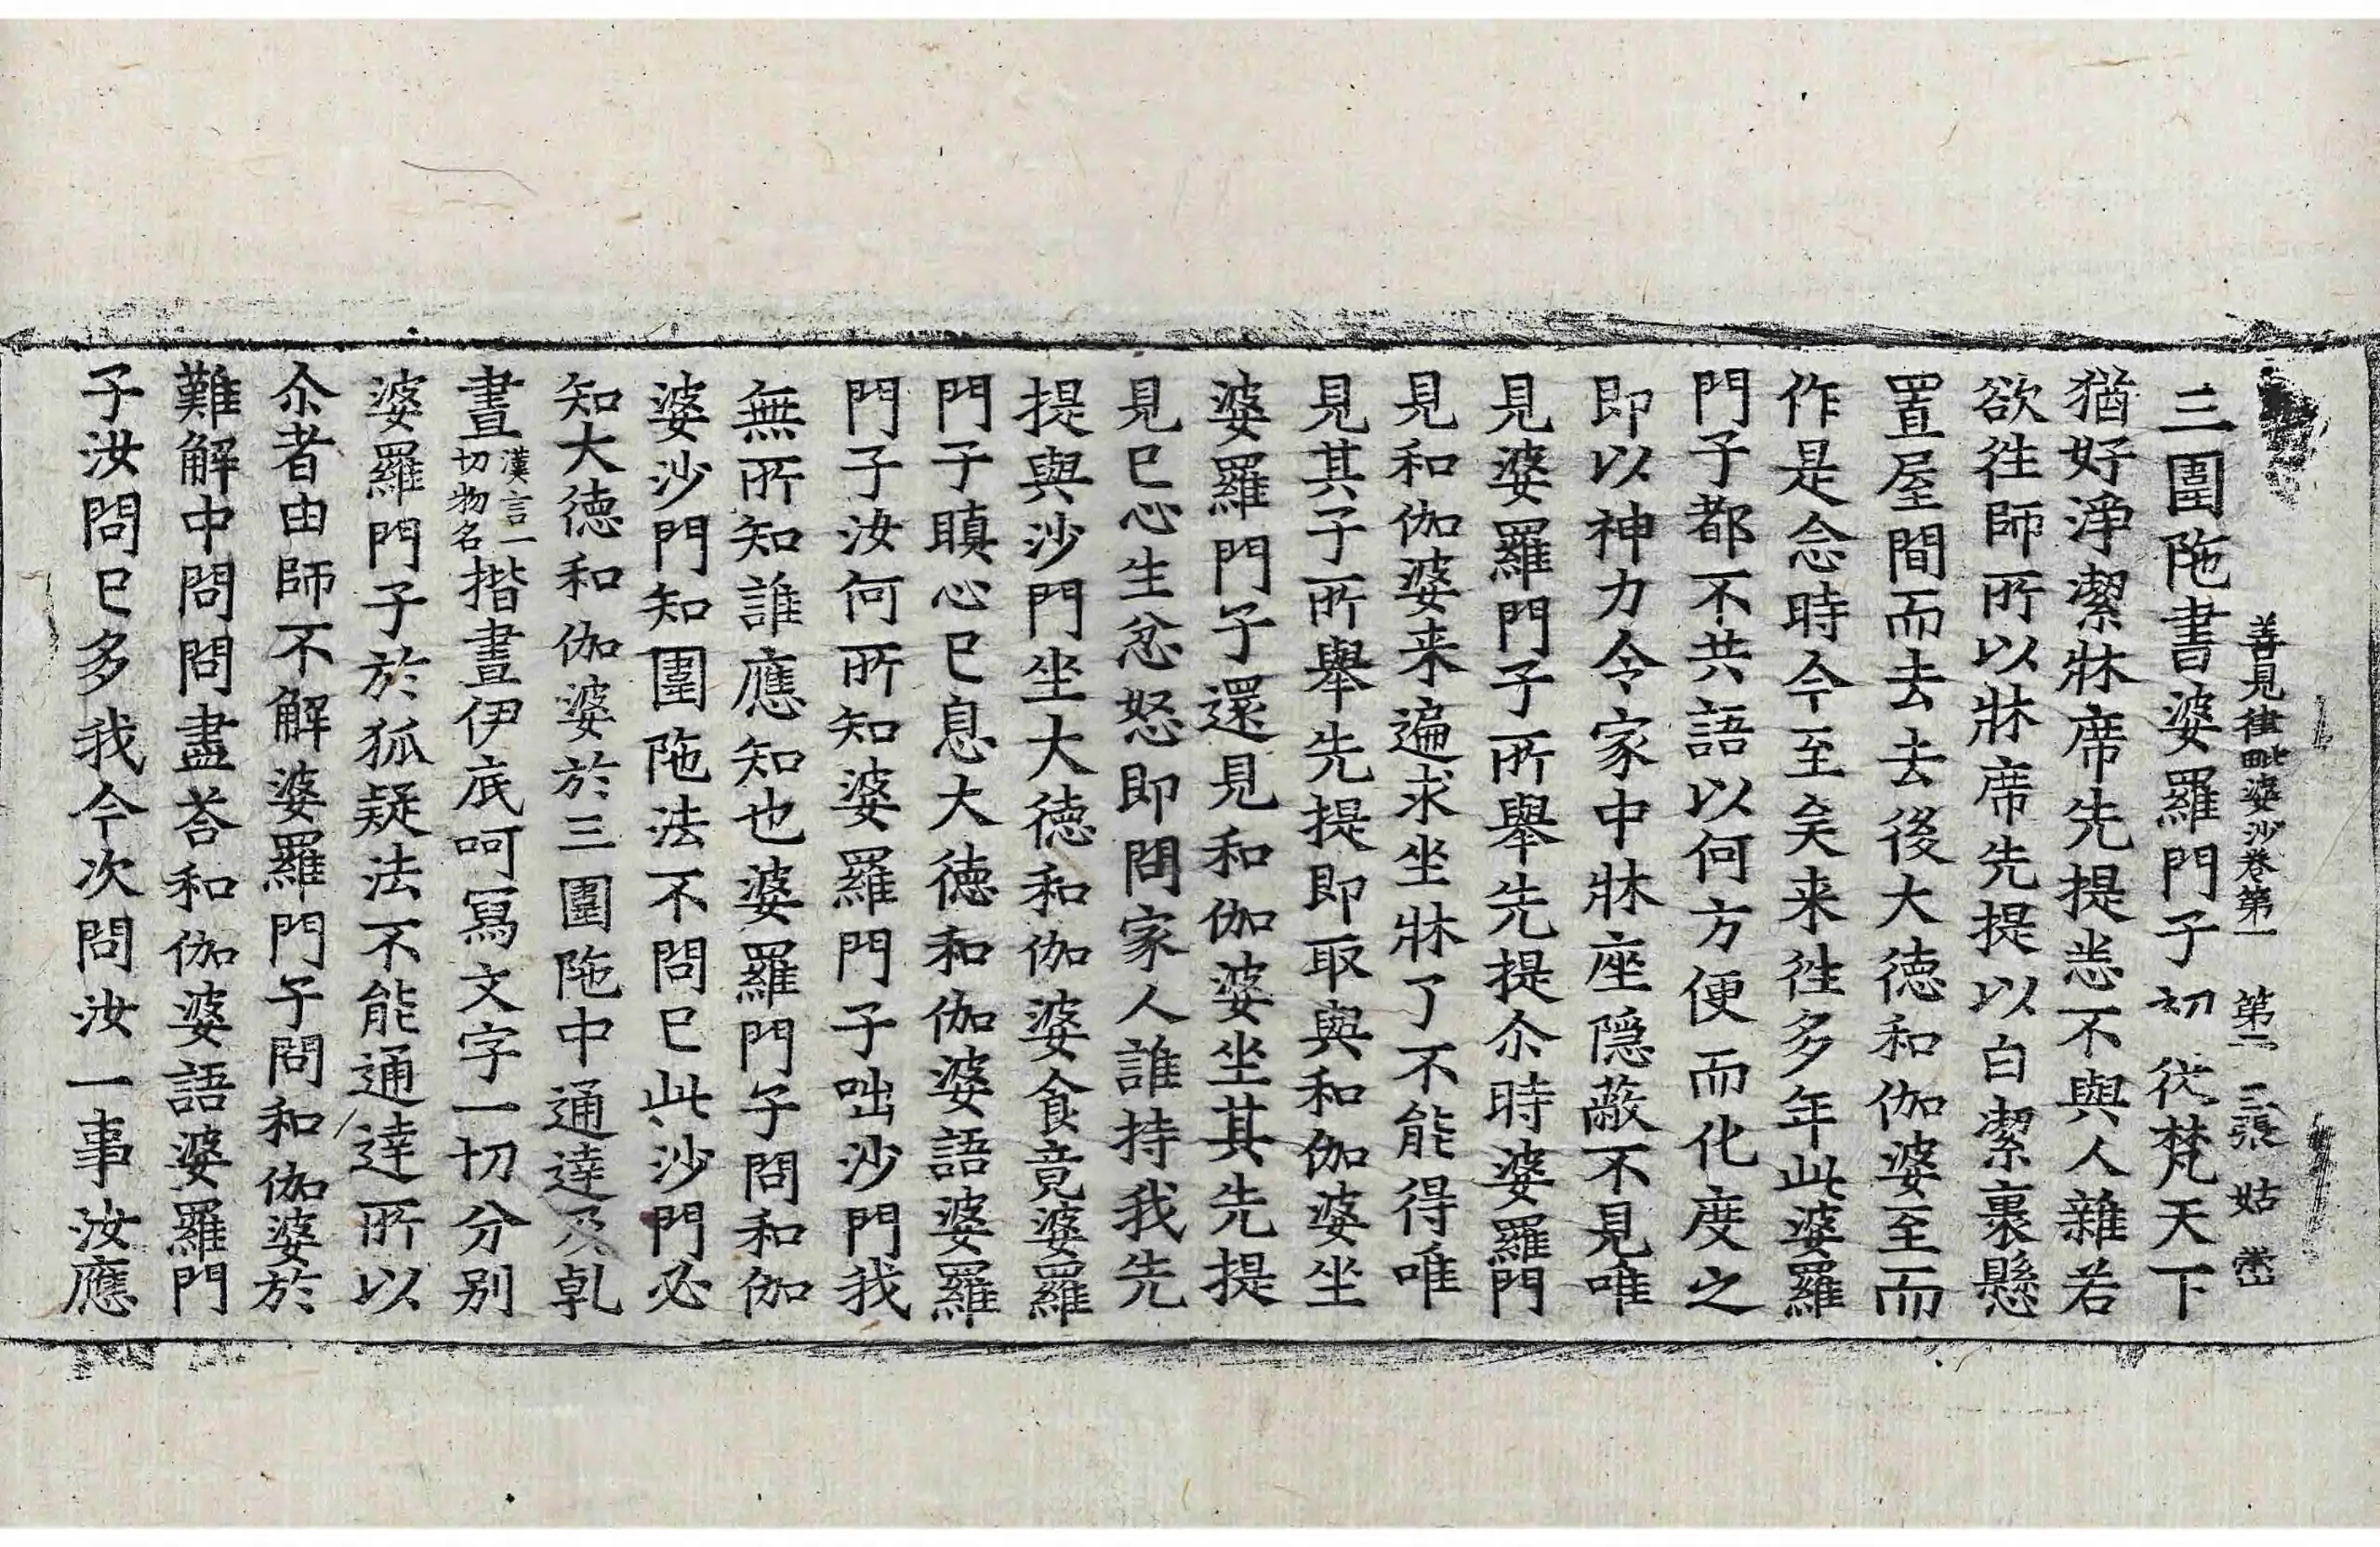 善見律毗婆沙卷第一 第二 三張 姑
三圍陁書婆羅門子初從梵天下
猶好淨潔牀席先提恙不與人雜若
欲往師所以牀席先提以白潔裹懸
置屋間而去去後大德和伽婆至而
作是念時今至矣来往多年此婆羅
門子都不共語以何方便而化度之
即以神力令家中牀座隱蔽不見唯
見婆羅門子所舉先提尒時婆羅門
見和伽婆来遍求坐牀了不能得唯
見其子所舉先提即取與和伽婆坐
婆羅門子還見和伽婆坐其先提
見已心生忿怒即問家人誰持我先
提與沙門坐大德和伽婆食竟婆羅
門子瞋心已息大德和伽婆語婆羅
門子汝何所知婆羅門子咄沙門我
無所知誰應知也婆羅門子問和伽
婆沙門知圍陁法不問已此沙門必
知大德和伽婆於三圍陁中通達及乹
晝漢言一切物名揩晝伊底呵寫文字一切分別
婆羅門子於狐疑法不能通達所以
尒者由師不解婆羅門子問和伽婆於
難解中問問盡荅和伽婆語婆羅門
子汝問已多我今次問汝一事汝應